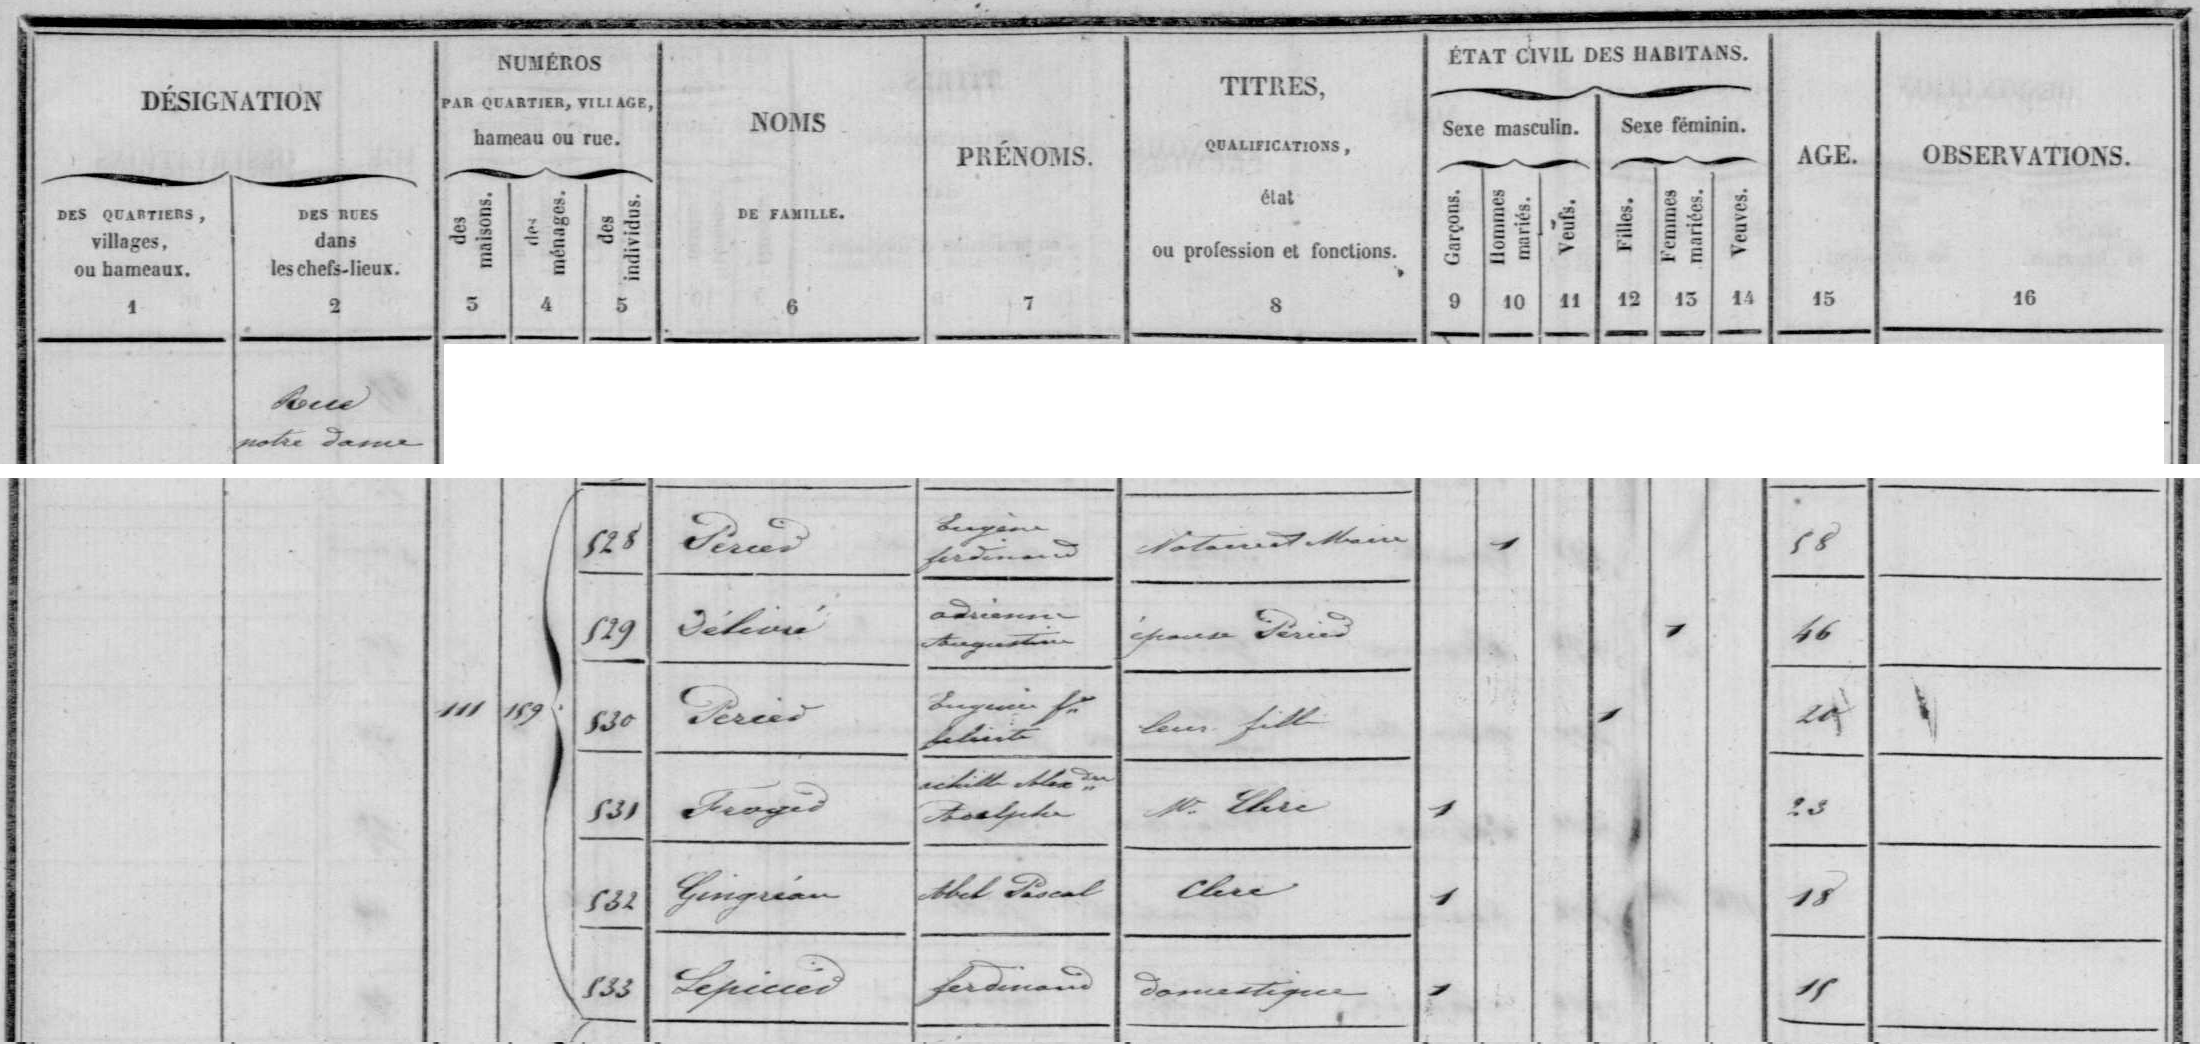 DÉSIGNATION
DES QUARTIERS,
villages,
ou hameaux.
1
DES RUES
dans
les chefs-lieux.
2
NUMÉROS
PAR QUARTIER, VILLAGE,
hameau ou rue.
des
maisons.
3
des
ménages.
4
des
individus.
5
NOMS
DE FAMILLE.
6
PRÉNOMS.
7
TITRES,
QUALIFICATIONS,
état
ou profession et fonctions.
8
ÉTAT CIVIL DES HABITANS.
Sexe masculin.
Garçons.
9
Hommes
mariés.
10
Veufs.
11
Sexe féminin.
Filles.
12
Femmes
mariées.
13
Veuves.
14
AGE.
15
OBSERVATIONS.
16
Rue
notre dame
111 159
528 Eugène
ferdinand Notaire et Maire 1 58
529 Délivré adrienne
Augustine épouse 1 46
530 Eugénie
leur fille 1
531 Froger achille Alexdre
Adolphe Me Clerc 1 23
532 Gingréau Abel Pascal Clerc 1 18
533 Lepicier ferdinand domestique 1 15